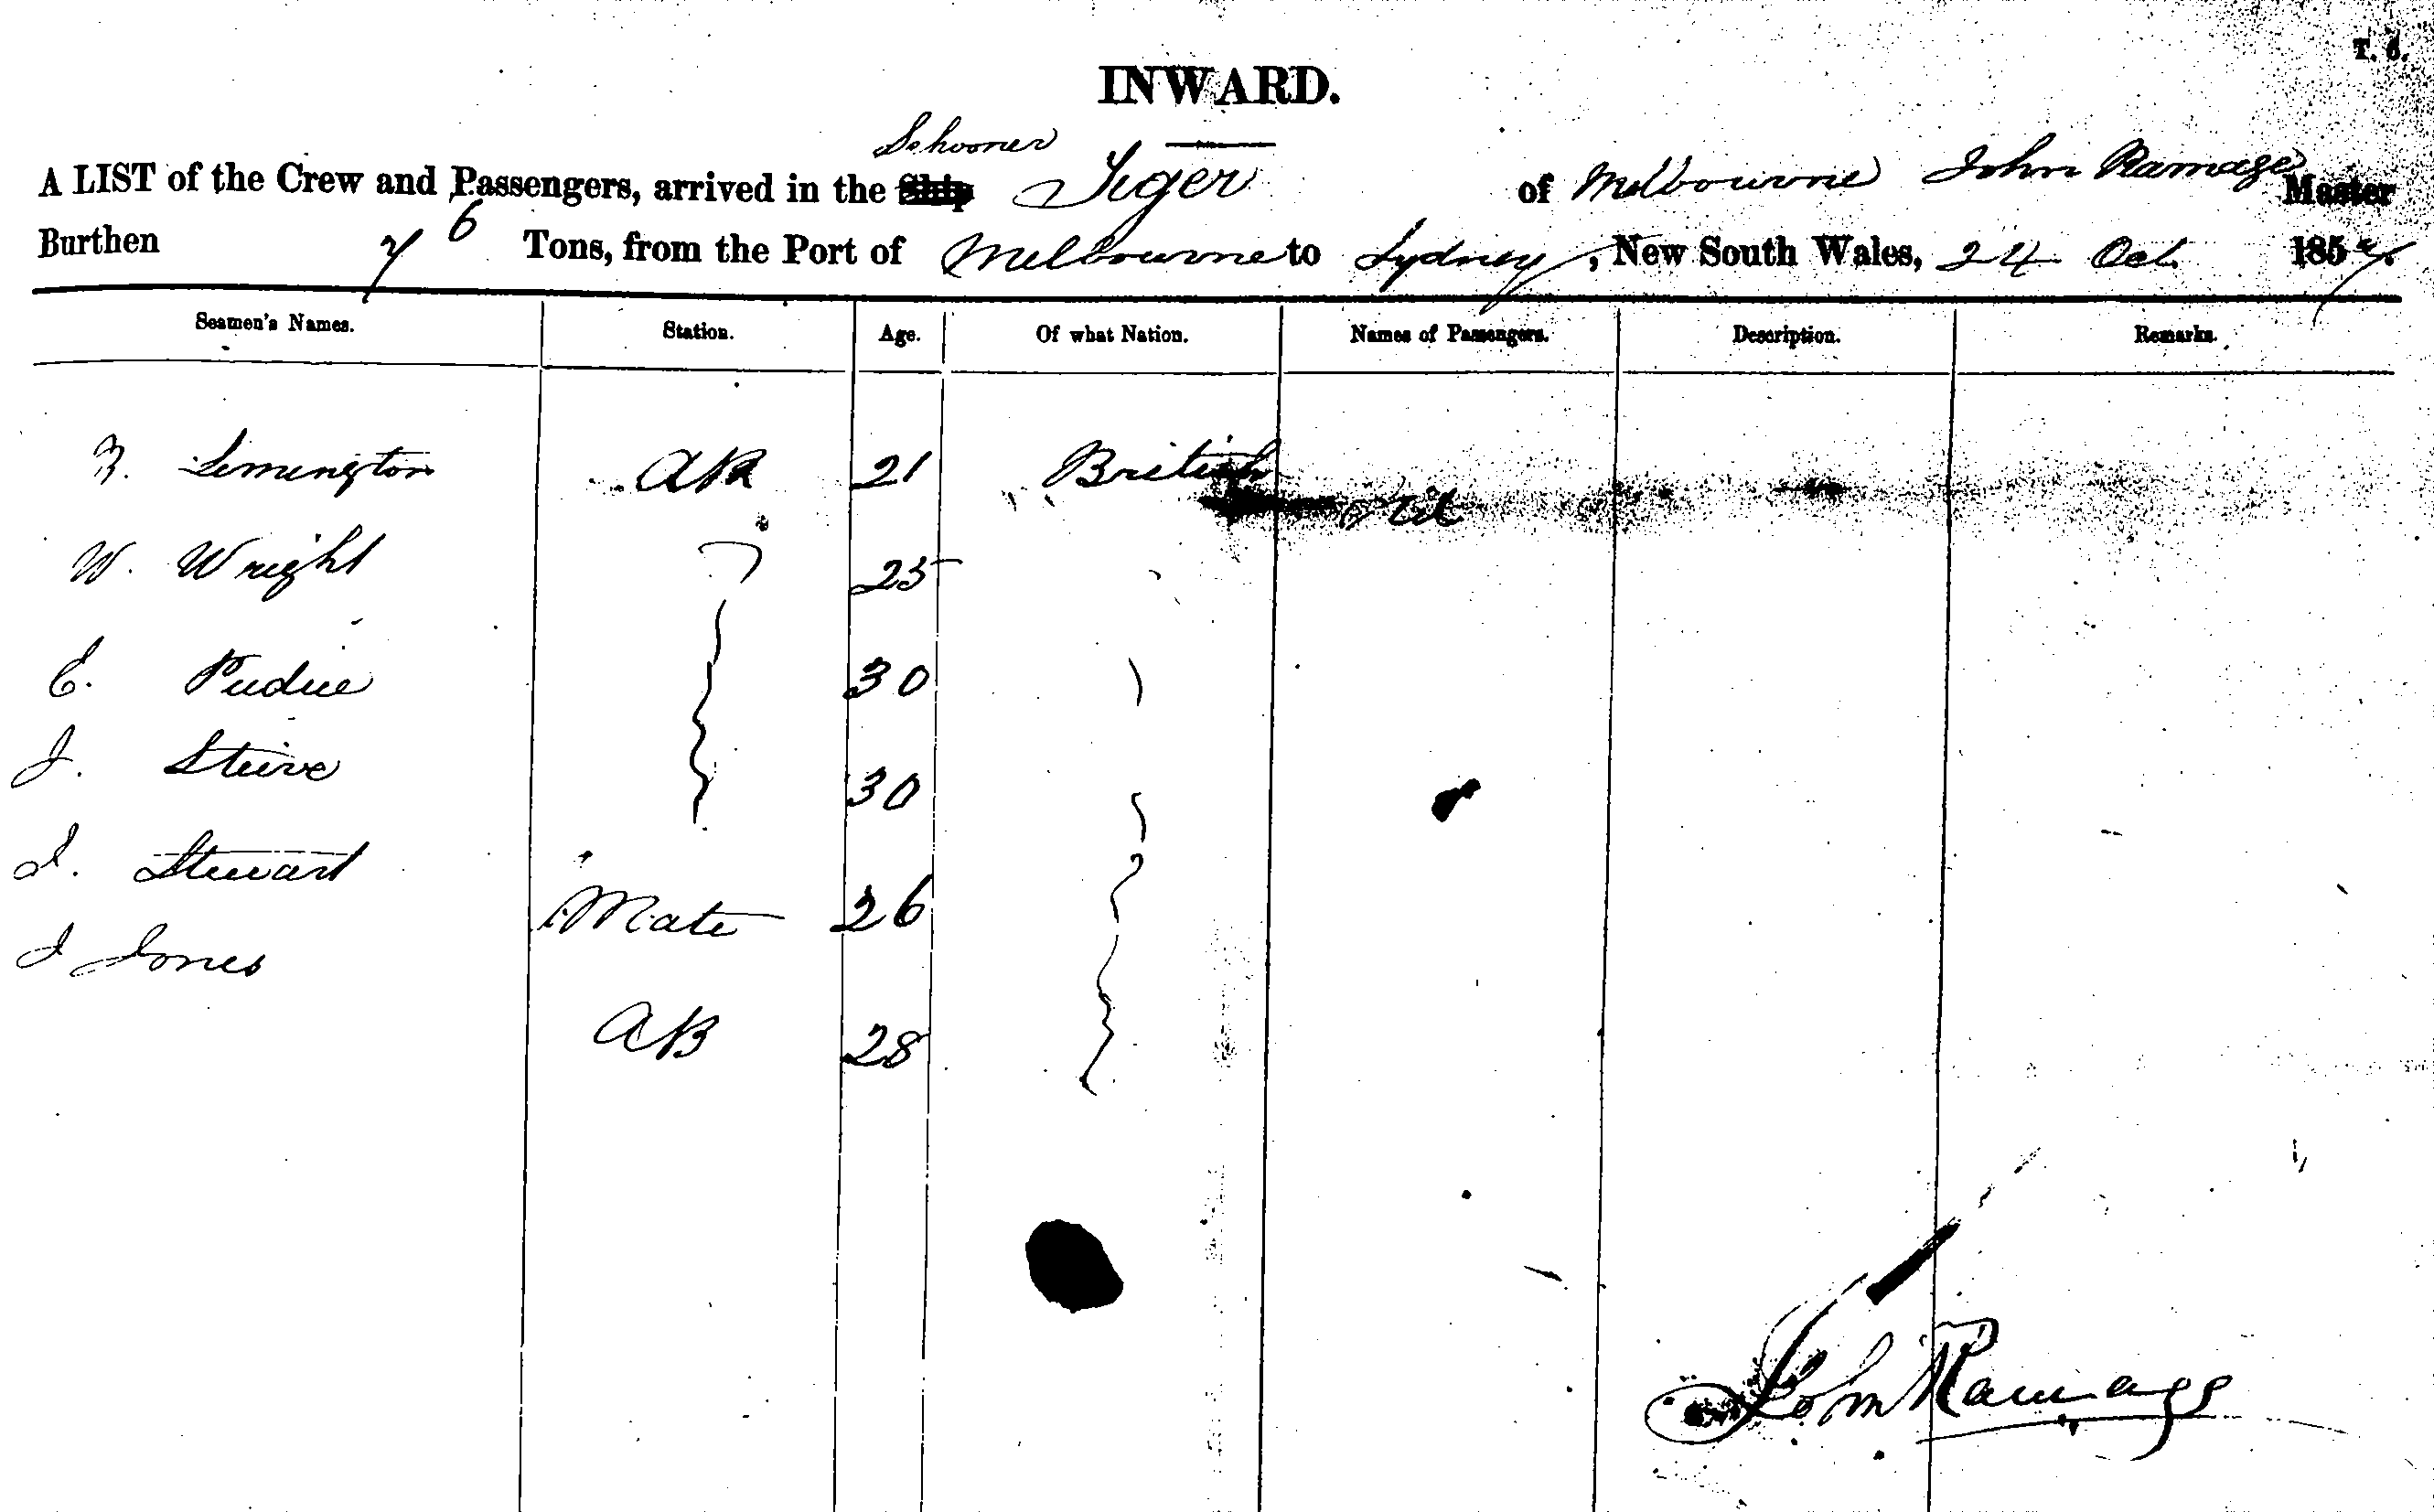 T. 6.
INWARD.
Schooner
A LIST of the Crew and Passengers, arrived in the Ship Tiger of Melbourne John Ramage Master
Burthen 76 Tons, from the Port of Melbourne to Sydney, New South Wales, 24 Oct. 1857.
Seamen's Names. Station. Age. Of what Nation. Names of Passengers. Description. Remarks.
Lemington AB 21 British Nil
W. Wright 25
E. Pudue 30
J. 30
J. Stewart Mate 26
J Jones AB 28
John Ramage